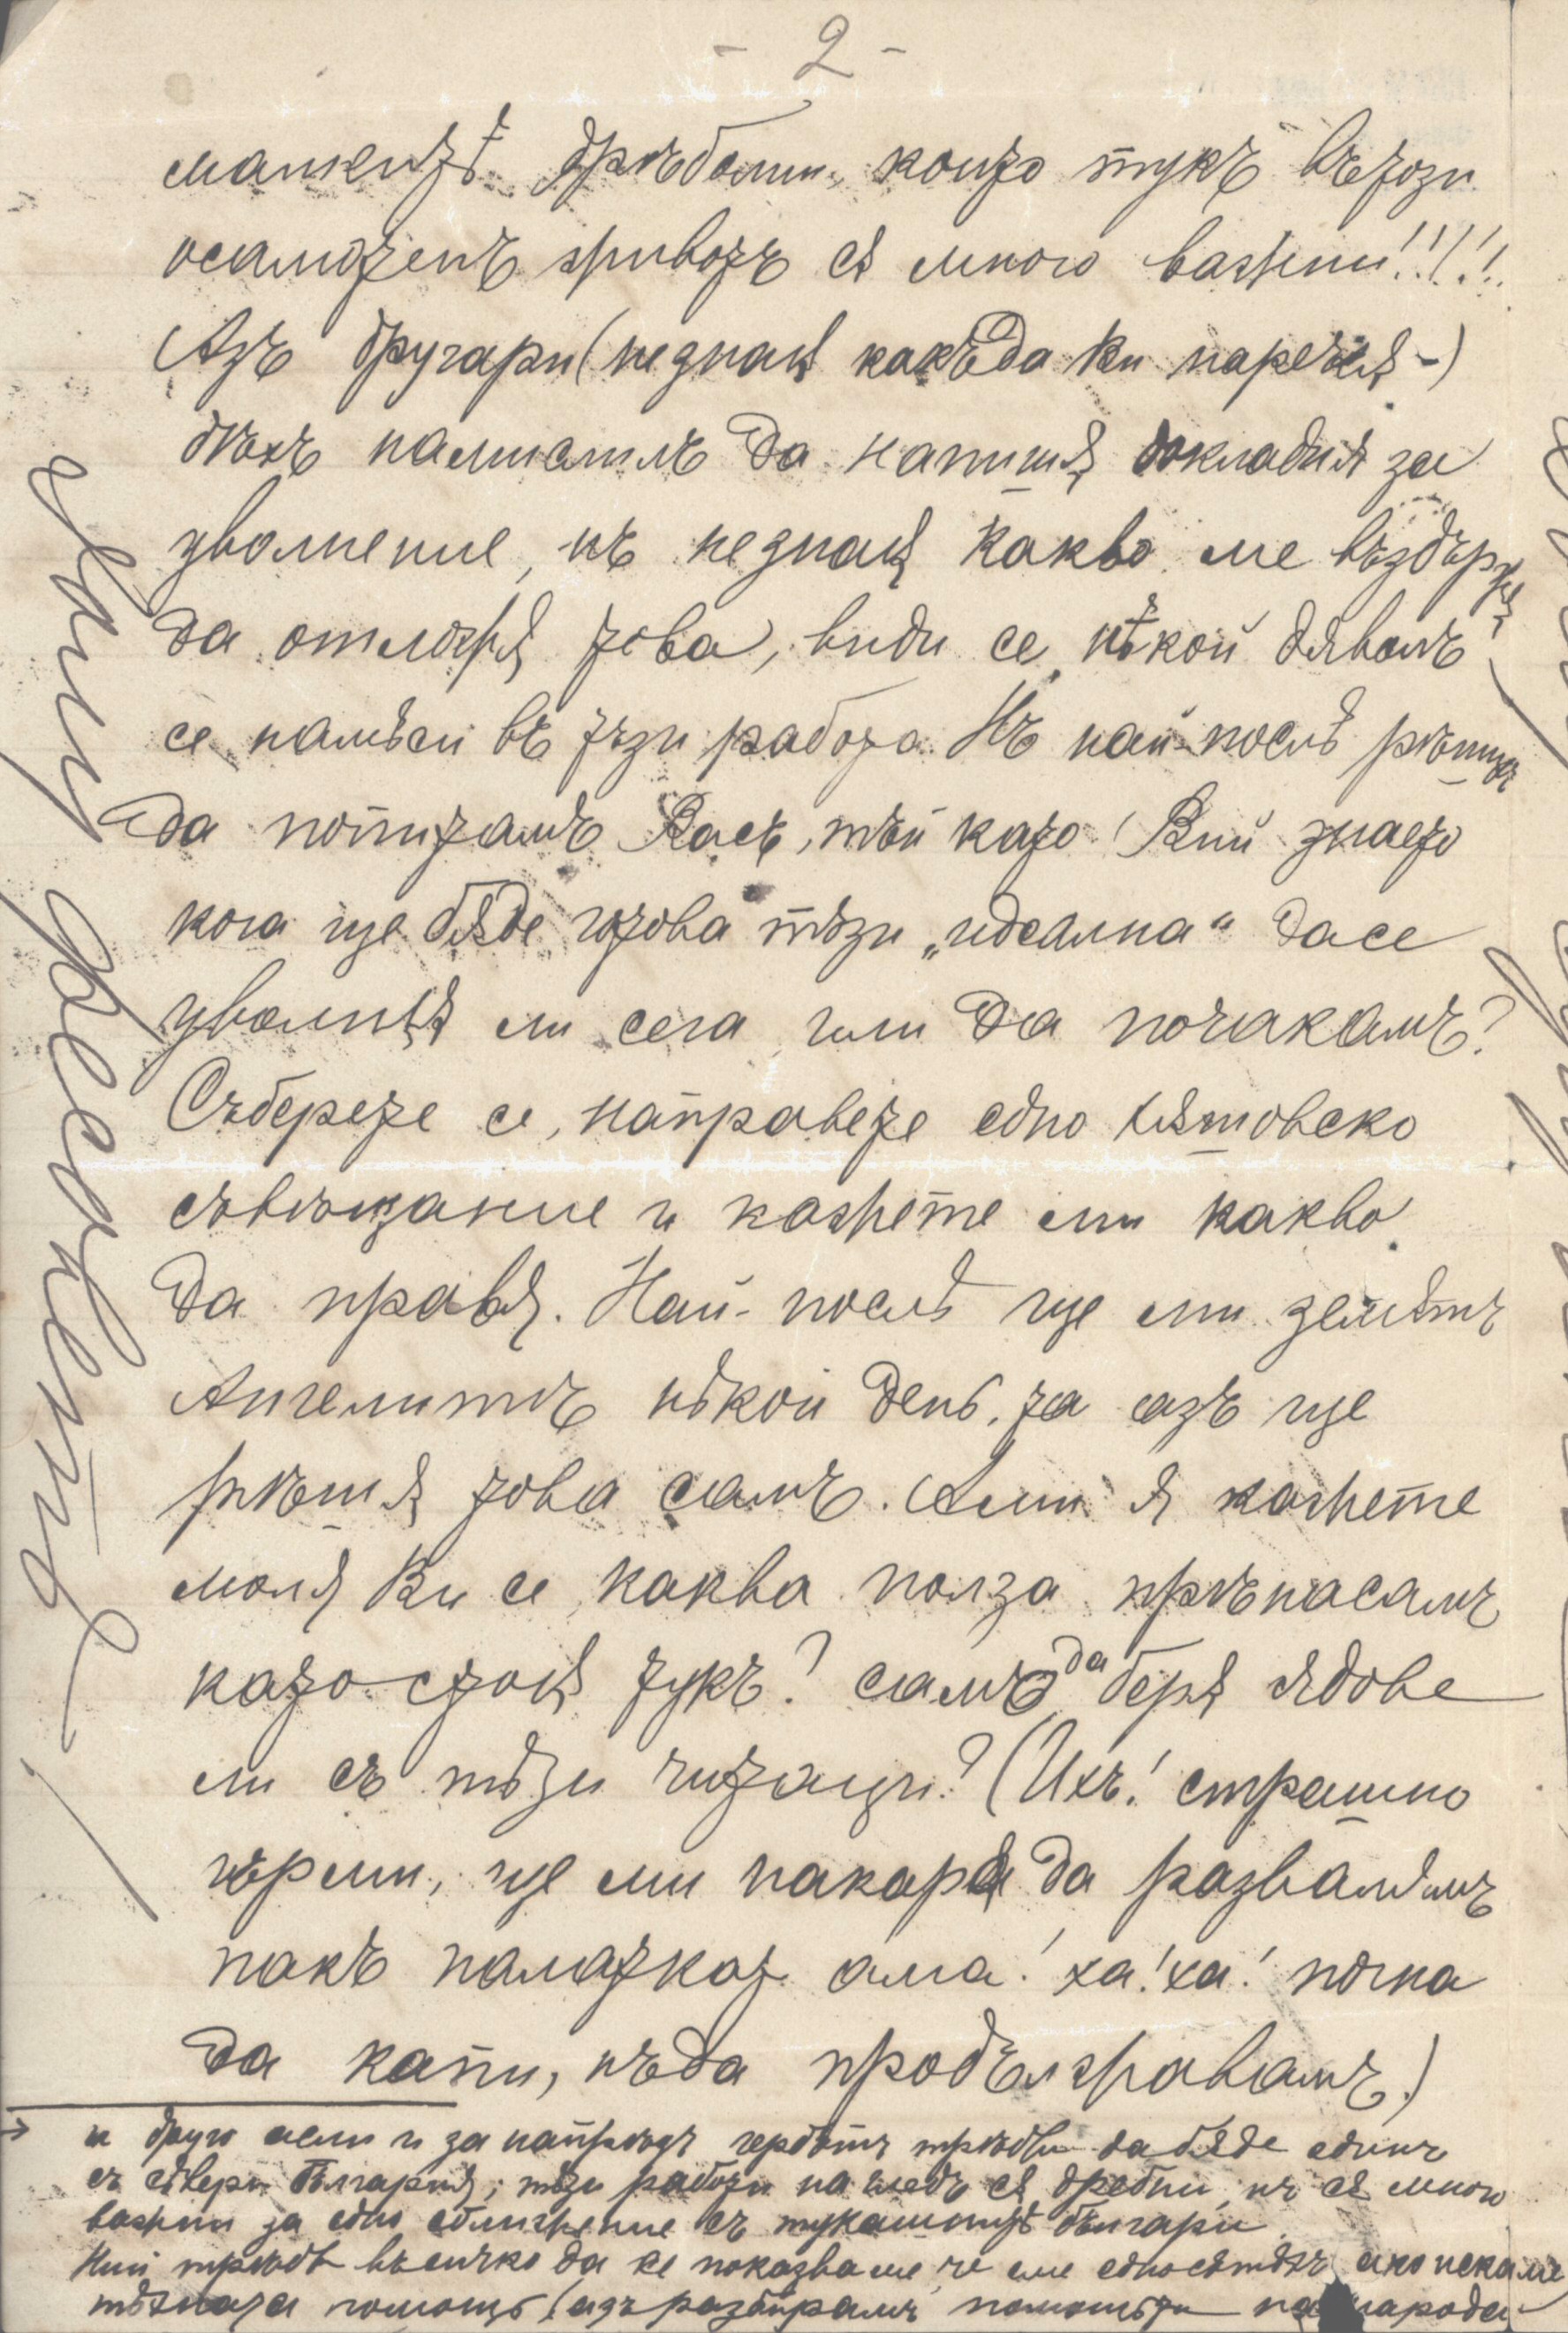 - 2 -
малкитѣ дрѣболии, които тукъ въ този
осамотенъ животъ сѫ много важни!!!!!
Азъ другари (не знаѭ какъ да Ви нарекѫ -)
бѣхъ намислилъ да напишѫ докладиѫ за
уволнение, нъ не знаѭ какво ме въздържѫ
да отложѫ това, види се нѣкой дяволъ
се намѣси въ тѫзи работа. Нъ най-послѣ рѣшихъ
да попитамъ Васъ, тъй като Вий знаете
кога ще бѫде готова тѣзи „идеална“ да се
уволнѭ ли сега или да почакамъ?
Съберете се, направете едно
съвѣщание и кажете ми какво
да правѭ. Най-послѣ ще ми земѫтъ
Ангелитѣ нѣкой день, та азъ ще
рѣшѫ това самъ. Ами я кажете
молѭ Ви се, каква полза прѣнасамъ
като стоѭ тукъ? самъ да берѫ ядове
ли съ тѣзи читащи? (Ихъ! страшно
гърми, ще ми накара да развалямъ
пакъ ама! ха! ха! почна
да капи, нъ да продължавамъ.)
→ и друго если и за напрѣдъ гербътъ трѣбва да бѫде единъ
съ сѣверн. България; тѣзи работи на гледъ сѫ дребни, нъ сѫ много
важни за едно сближение съ тукашнитѣ българи.
Ний трѣбва въ сичко да се показваме, че сме едно сѫ тѣхъ ако искаме
тѣхната помощь (азъ разбирамъ помощьта на народа